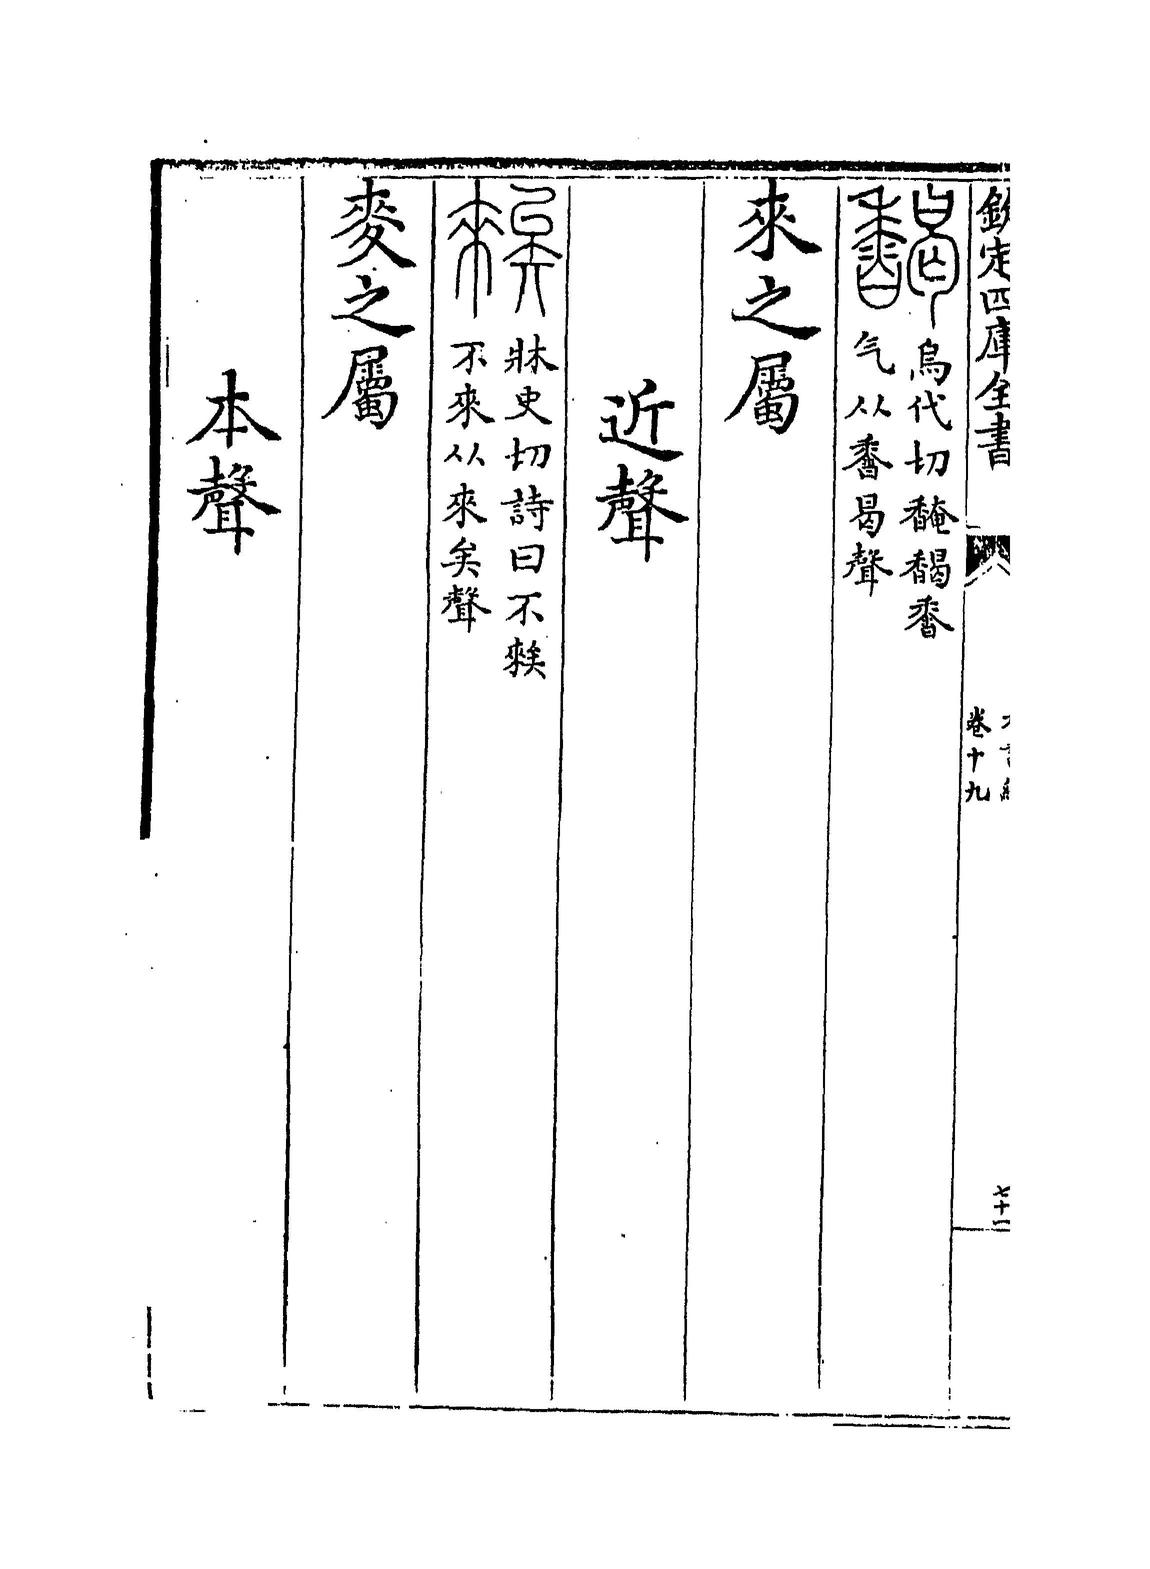 欽定四庫全書
卷十九
七十一
馤烏代切馣馤香
气从香曷聲
來之屬
近聲
䅘牀史切詩曰不䅘
不來从來矣聲
麥之屬
本聲